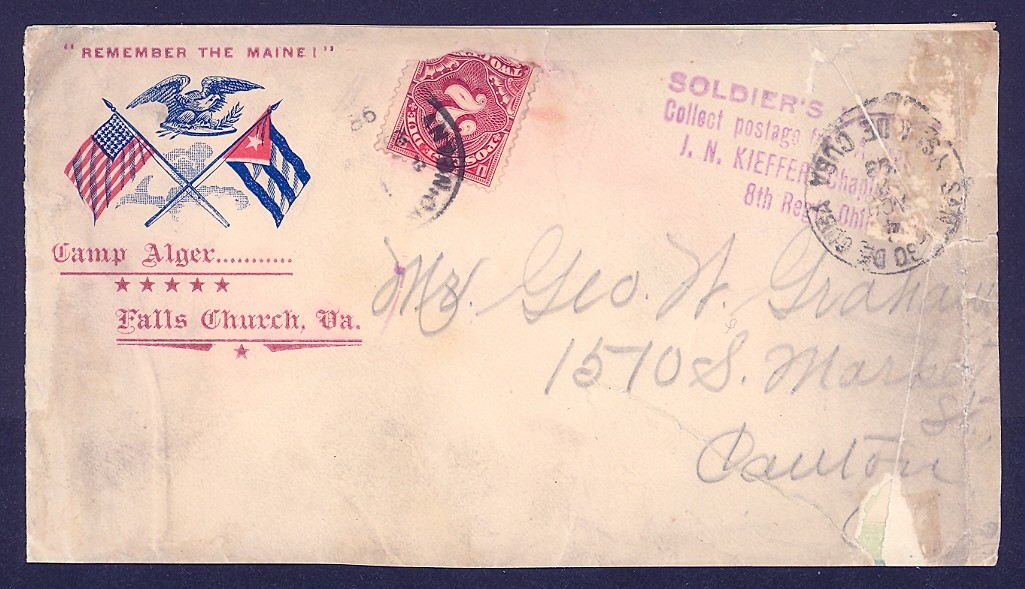 "REMEMBER THE MAINE!"
Camp Alger...........
Falls Church, Va.
2
SOLDIER'S
Collect postage
J. N. KIEFFER, Chap
8th Regt. Ohi
SAN
GO DE CUBA
CUBA
Mr. Geo. W. Graham
1570 S. Market
St
Canton